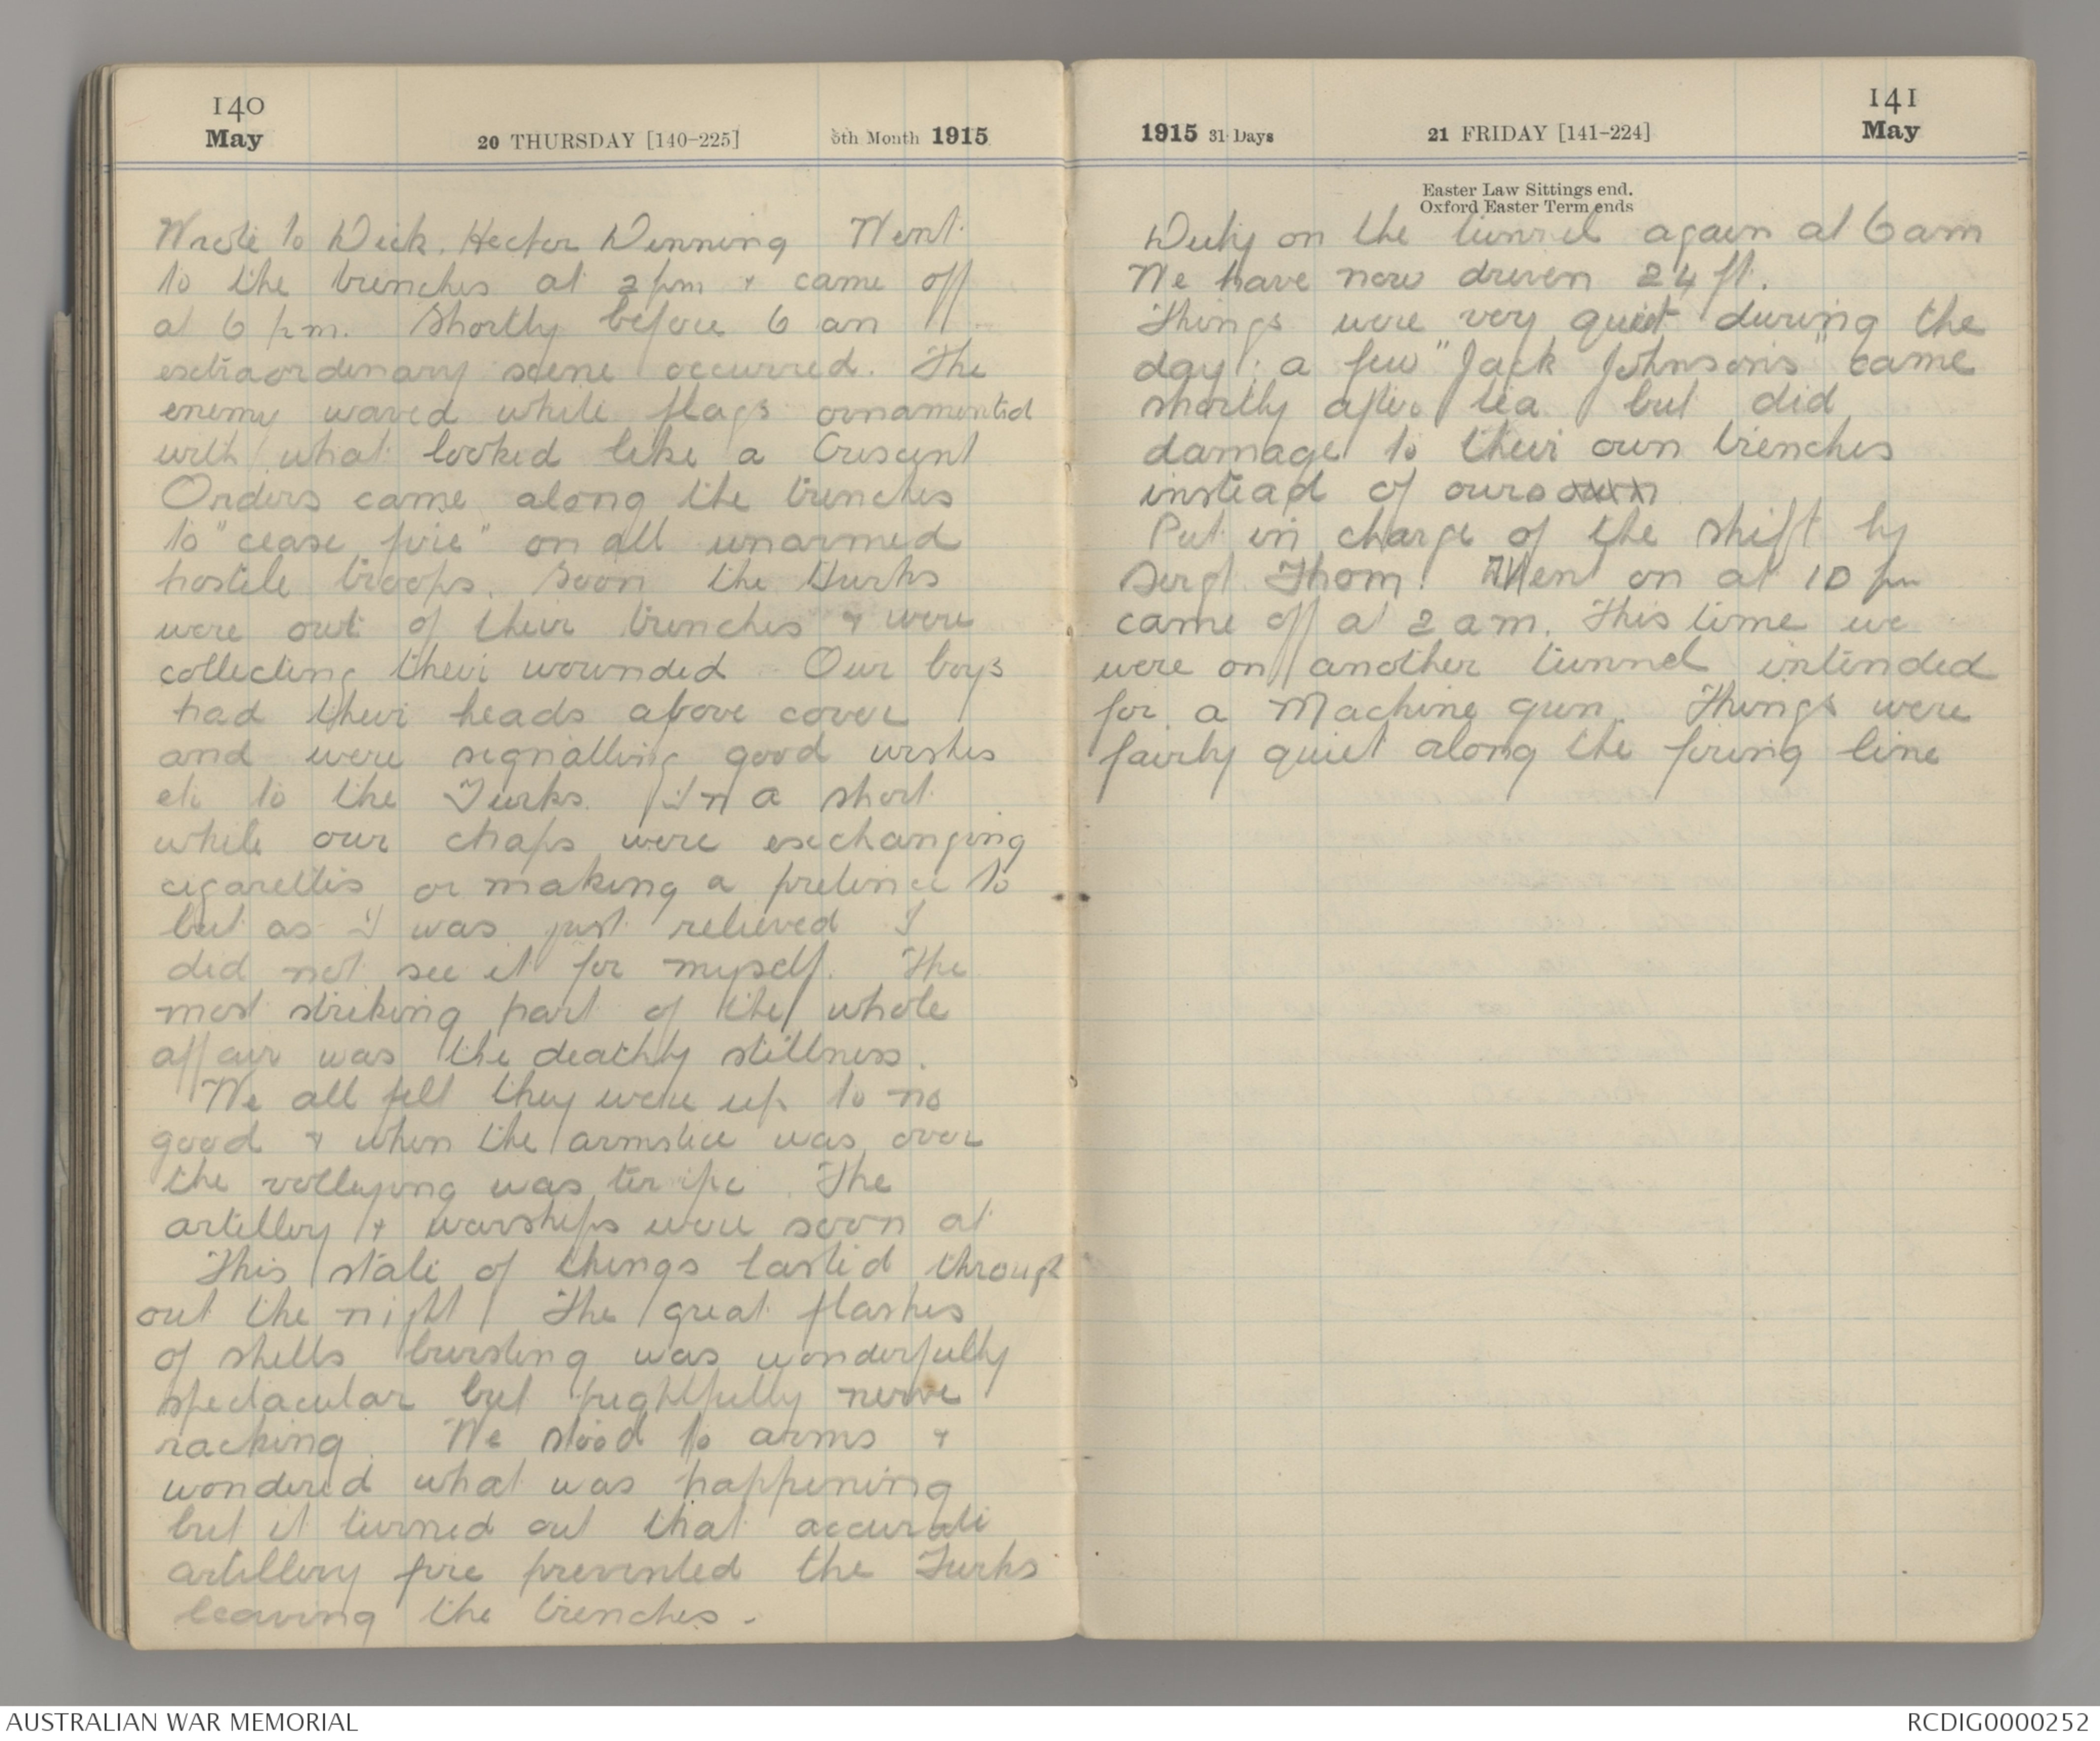 140
May
20 THURSDAY [140-225]
5th Month 1915
Wrote to Dick. Hector Denning Went
to the trenches at 2 pm & came off
at 6 pm. Shortly before 6 an
extraordinary scene occurred. The
enemy waved white flags ornamented
with what looked like a Crescent
Orders came along the trenches
to "cease fire" on all unarmed
hostile troops. Soon the Turks
were out of their trenches & were
collecting their wounded Our boys
had their heads above cover
and were signalling good wishes
etc to the Turks. In a short
while our chaps were exchanging
cigarettes or making a pretence to
but as I was just relieved I
did not see it for myself. The
most striking part of the whole
affair was the deathly stillness.
We all felt they were up to no
good & when the armstice was over
the volleying was terific The
artillery & warships were soon at
This state of things lasted through
out the night The great flashes
of shells bursting was wonderfully
spectacular but frightfully nerve
racking. We stood to arms &
wondered what was happening
but it turned out that accurate
artillery fire prevented the Turks
leaving the trenches.
1915 31 Days
21 FRIDAY [141-224]
141
May
Easter Law Sittings end.
Oxford Easter Term ends
Duty on the tunnel again at 6 am
We have now driven 24 ft.
Things were very quiet during the
day; a few "Jack Johnsons" came
shortly after tea but did
damage to their own trenches
instead of ours own
Put in charge of the shift by
Sergt Thom. Went on at 10 pm
came off at 2 am. This time we
were on another tunnel intended
for a Machine gun. Things were
fairly quiet along the firing line
AUSTRALIAN WAR MEMORIAL
RCDIG0000252